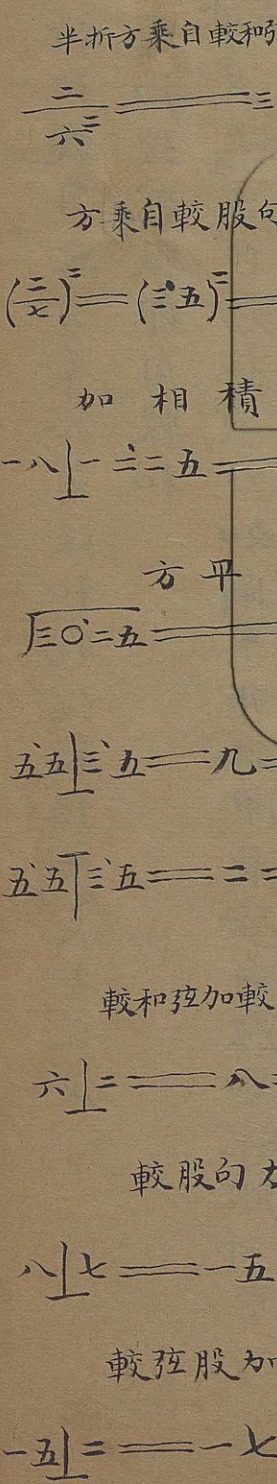 半折方乘自較和弦
二/六二 = 三
方乘自較股句
(二/七)^二 = (三·五)^二 =
加相積
一八⊥一二·二五 =
方平
√三〇·二五 =
五·五⊥三·五 = 九 =
五·五⊤三·五 = 二 =
較和弦加較
六⊥二 = 八 =
較股句加
八⊥七 = 一五
較弦股加
一五⊥二 = 一七